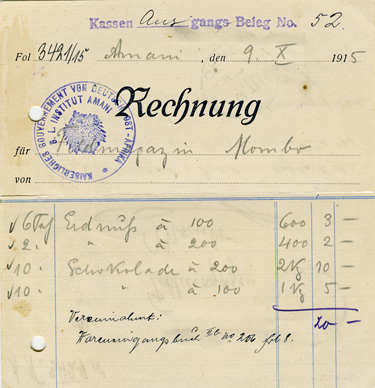 Kassen Ausgangs-Beleg No. 52.
Fol 3421/15 Amani, den 9. X 1915
Rechnung
KAISERLICHES GOUVERNEMENT VON DEUTSCH-OST-AFRIKA
B.L. INSTITUT AMANI
für Feldmagazin Mombo
von
6 Taf Erdnuß à 100 600 3 —
2 " " à 200 400 2 —
10 " Schokolade à 200 2 Kg 10 —
10 " " à 100 1 Kg 5 —
20 —
Vereinnahmt:
Wareneingangsbuch No 206 fol 8.